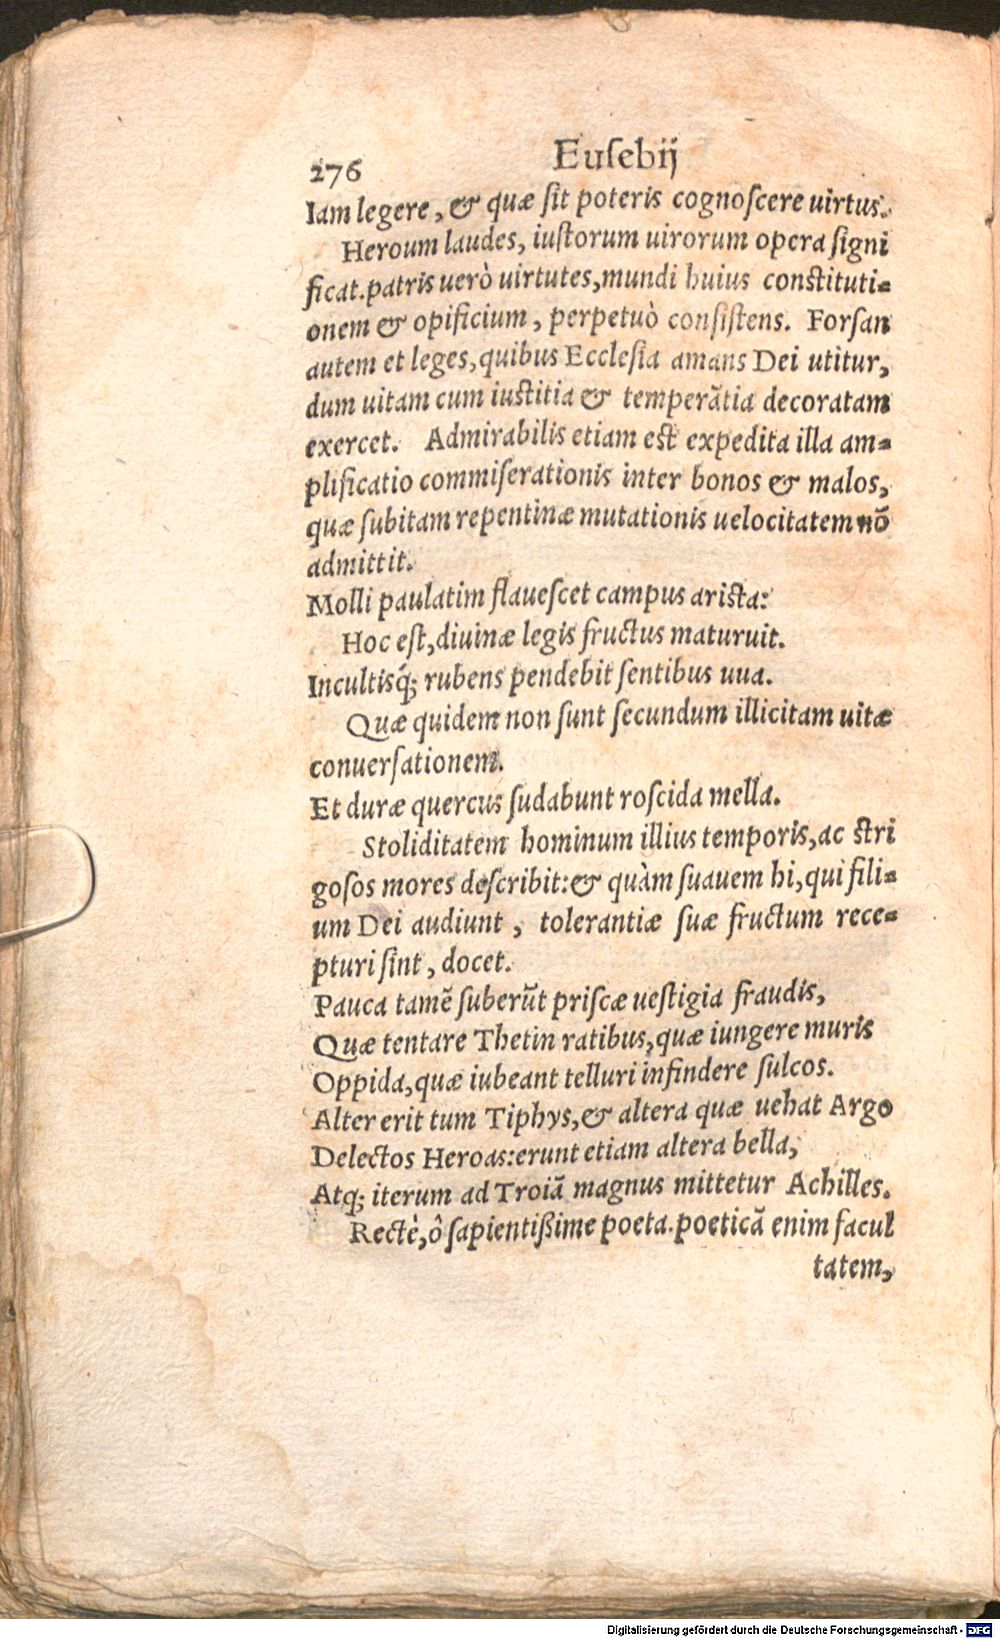 276 Euſebij
Iam legere, & quæ ſit poteris cognoſcere uirtus.
Heroum laudes, iuſtorum uirorum opera ſigni
ficat. patris uerò uirtutes, mundi huius conſtituti-
onem & opificium, perpetuò conſiſtens. Forſan
autem et leges, quibus Eccleſia amans Dei utitur,
dum uitam cum iuſtitia & temperãtia decoratam
exercet. Admirabilis etiam eſt expedita illa am-
plificatio commiſerationis inter bonos & malos,
quæ ſubitam repentinæ mutationis uelocitatem nõ
admittit.
Molli paulatim flaueſcet campus ariſta:
Hoc eſt, diuinæ legis fructus maturuit.
Incultisq́; rubens pendebit ſentibus uua.
Quæ quidem non ſunt ſecundum illicitam uitæ
conuerſationem.
Et duræ quercus ſudabunt roſcida mella.
Stoliditatem hominum illius temporis, ac ſtri
goſos mores deſcribit: & quàm ſuauem hi, qui fili-
um Dei audiunt, tolerantiæ ſuæ fructum rece-
pturi ſint, docet.
Pauca tamẽ ſuberũt priſcæ ueſtigia fraudis,
Quæ tentare Thetin ratibus, quæ iungere muris
Oppida, quæ iubeant telluri infindere ſulcos.
Alter erit tum Tiphys, & altera quæ uehat Argo
Delectos Heroas: erunt etiam altera bella,
Atq; iterum ad Troiã magnus mittetur Achilles.
Rectè, ô ſapientißime poeta. poeticã enim facul
tatem,
Digitalisierung gefördert durch die Deutsche Forschungsgemeinschaft - DFG